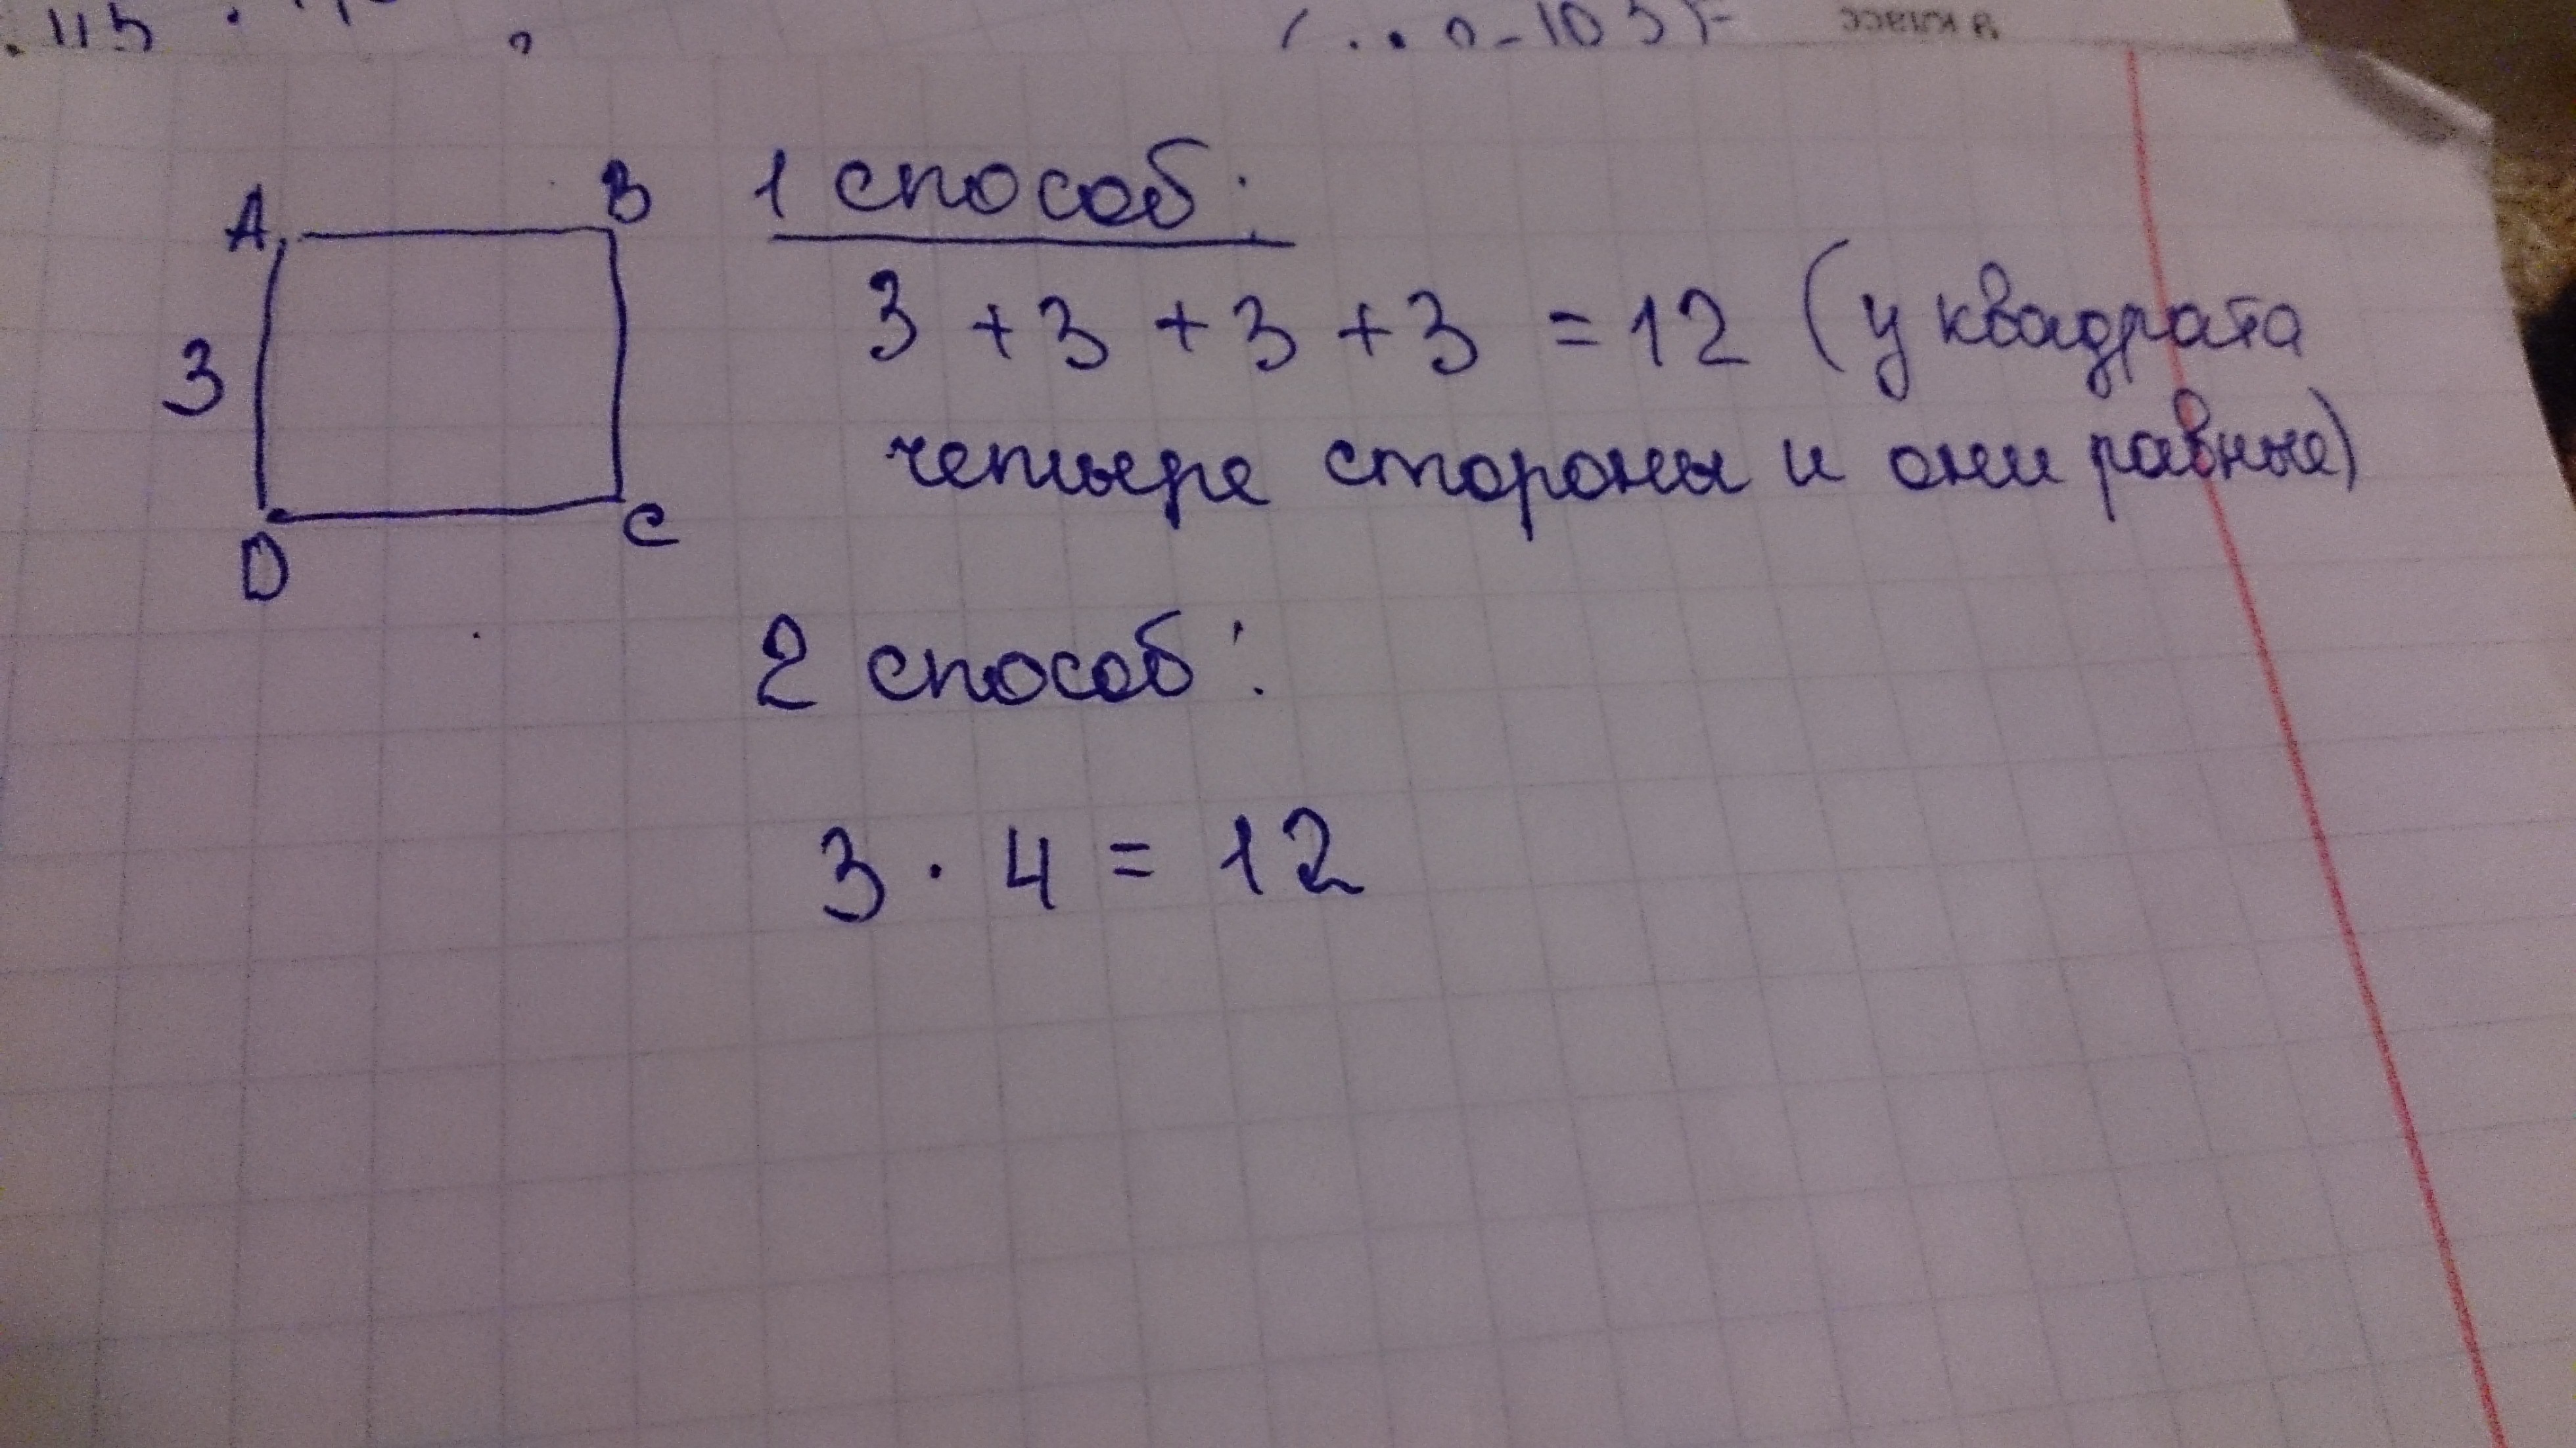 A
B
3
D
C
1 способ:
3 + 3 + 3 + 3 = 12 (у квадрата
четыре стороны и они равные)
2 способ:
3 · 4 = 12